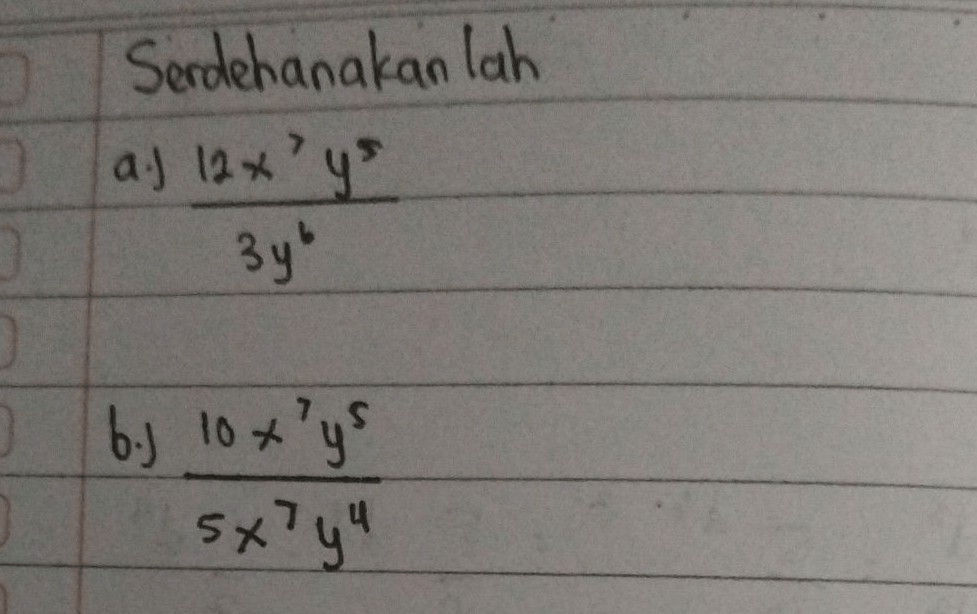 Serdehanakan lah
a.) 12x⁷ y⁵
3y⁶
b.) 10x⁷y⁵
5x⁷y⁴